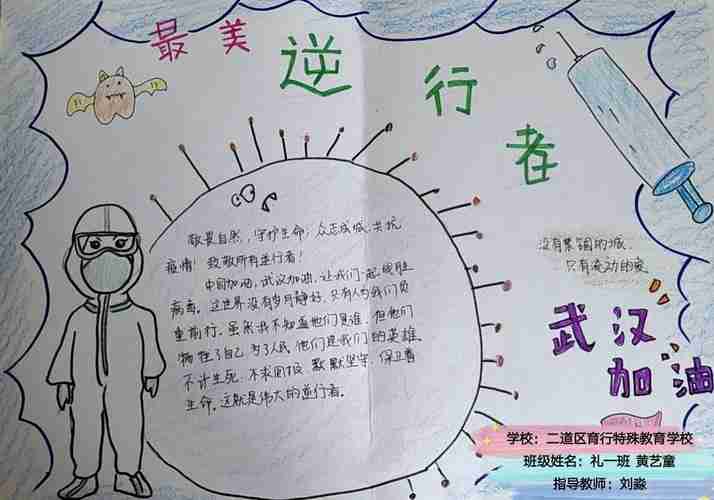 最美逆行者
敬畏自然，守护生命，众志成城，共抗
疫情！致敬所有逆行者！
中国加油，武汉加油，让我们一起战胜
病毒。这世界没有岁月静好，只有人为我们负
重前行。虽然我不知道他们是谁，但他们
牺牲了自己，为了人民，他们是我们的英雄。
不计生死，不求回报，默默坚守，保卫着
生命。这就是伟大的逆行者。
没有禁锢的城，
只有流动的爱
武汉
加油
学校：二道区育行特殊教育学校
班级姓名：礼一班 黄艺童
指导教师：刘淼